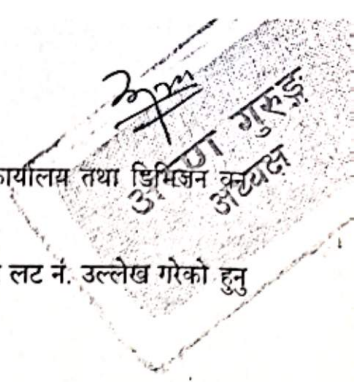 अरुण गुरुङ्ग
अध्यक्ष
कार्यालय तथा डिभिजन
लट नं. उल्लेख गरेको हुनु